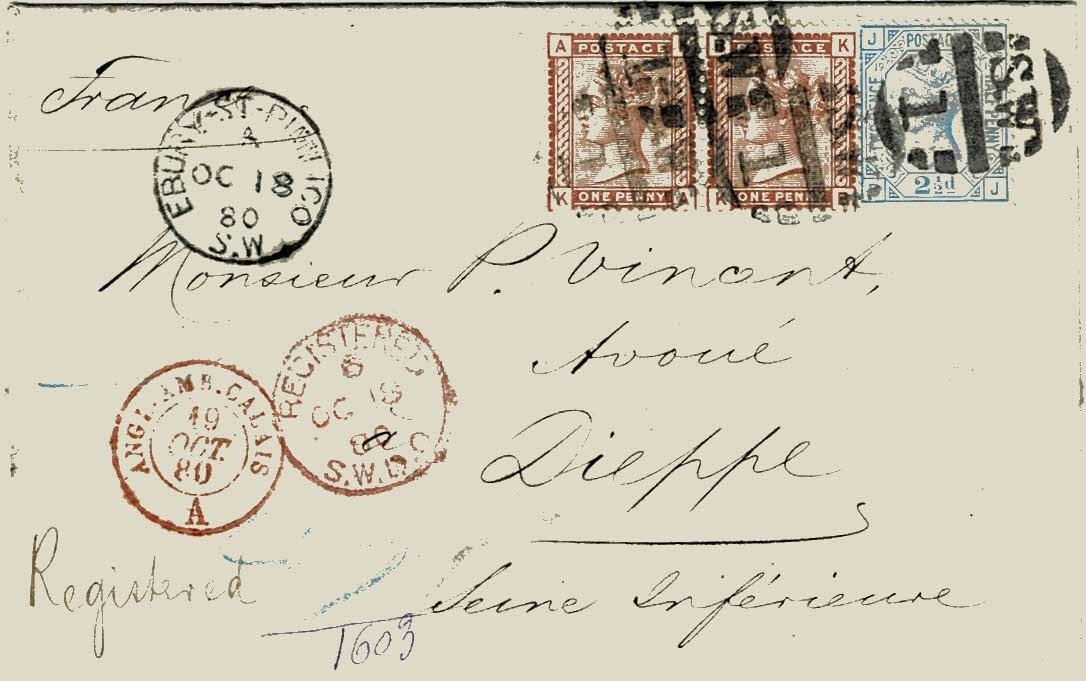 A POSTAGE
K ONE PENNY A
B POSTAGE K
K ONE PENNY B
J POSTAGE
2½d J
EBURY-ST-PIMLICO
A
OC 18
80
S.W
Monsieur P. Vinant,
Avoué
Dieppe
Seine Inférieure
REGISTERED
OC 19
80
S.W.D.O
ANGL.AMB.CALAIS
19
OCT.
80
A
Registered
1603